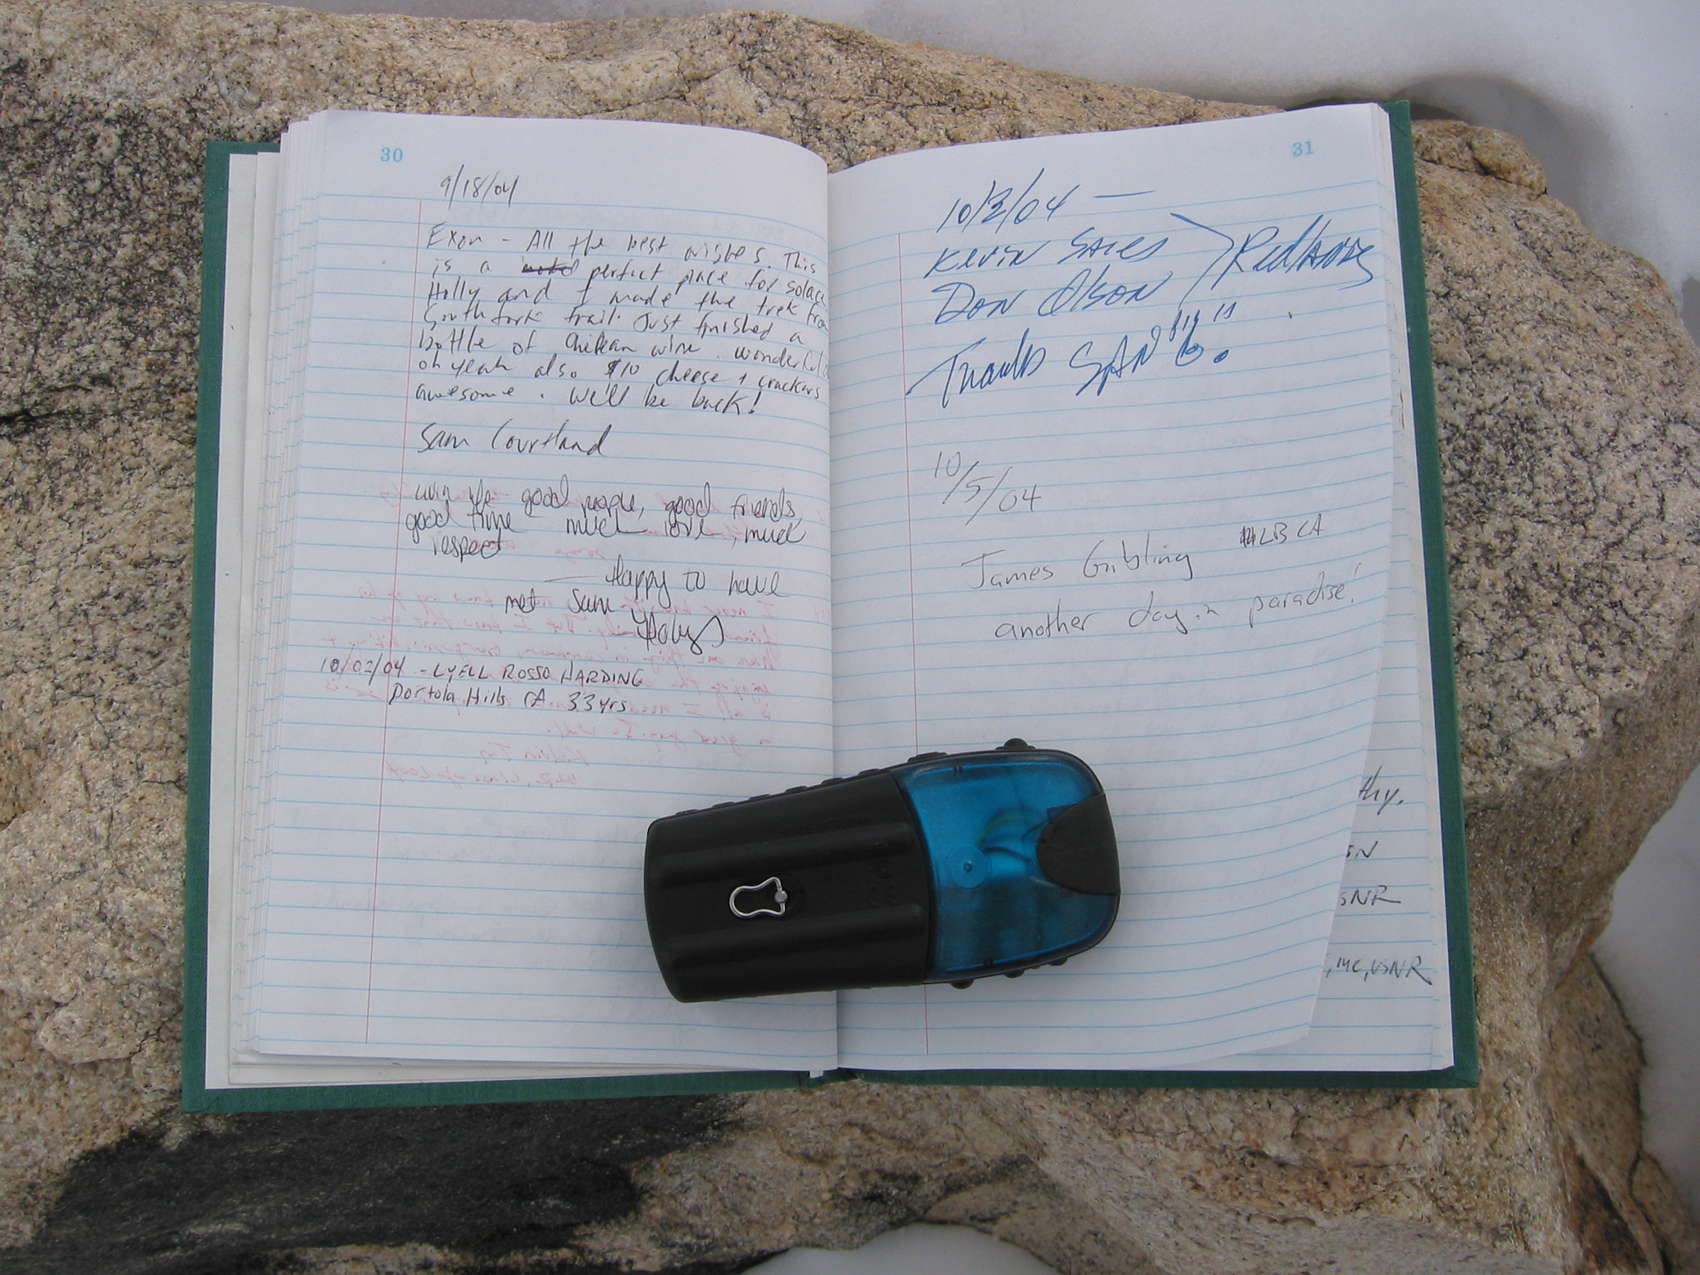 30
9/18/04
Exon - All the best wishes. This
is a perfect place for solace
Holly and I made the trek from
South fork trail. Just finished a
bottle of Chilean wine. wonderful
oh yeah also $10 cheese + crackers
awesome. we'll be back!
Sam Courtland
good people, good friends,
good time much love, much
respect
— Happy to have
met Sam
10/02/04 - LYELL ROSSO HARDING
Portola Hills CA 33 yrs
31
10/2/04 —
KEVIN SALES
DON OLSON
Redlands
Thanks SAN "G."
10/5/04
James Gibling LB CA
another day in paradise!
thy.
SN
SNR
, MC, USNR